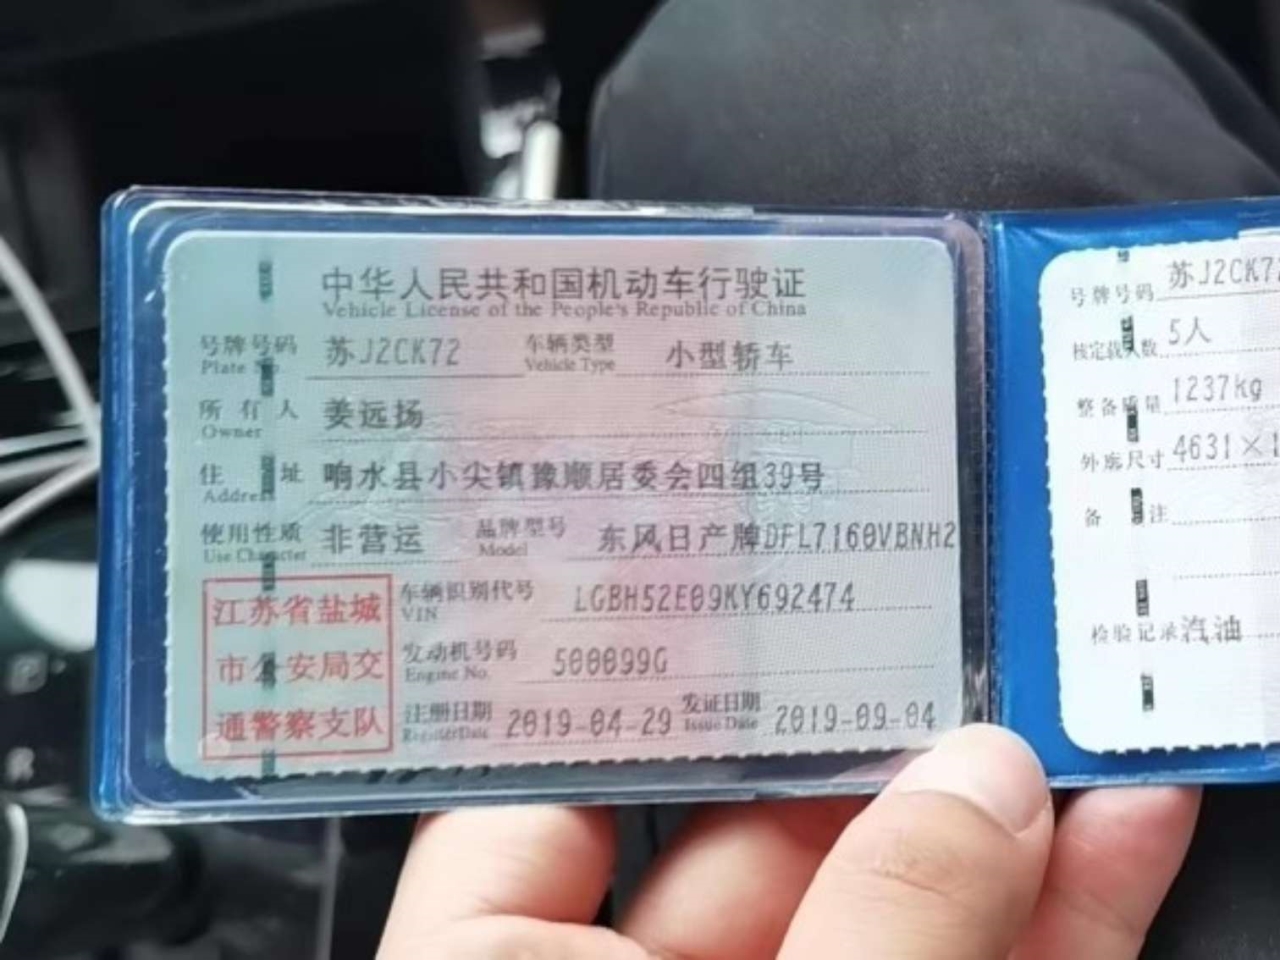 中华人民共和国机动车行驶证
Vehicle License of the People's Republic of China
号牌号码 苏J2CK72 车辆类型 小型轿车
Plate No. Vehicle Type
所有人 姜远扬
Owner
住址 响水县小尖镇豫顺居委会四组39号
Address
使用性质 非营运 品牌型号 东风日产牌DFL7160VBNH2
Use Character Model
江苏省盐城
市公安局交
通警察支队
车辆识别代号 LGBH52E09KY692474
VIN
发动机号码 500099G
Engine No.
注册日期 2019-04-29 发证日期 2019-09-04
Register Date Issue Date
号牌号码 苏J2CK72
核定载人数 5人
整备质量 1237kg
外廓尺寸 4631×1
备注
检验记录 汽油